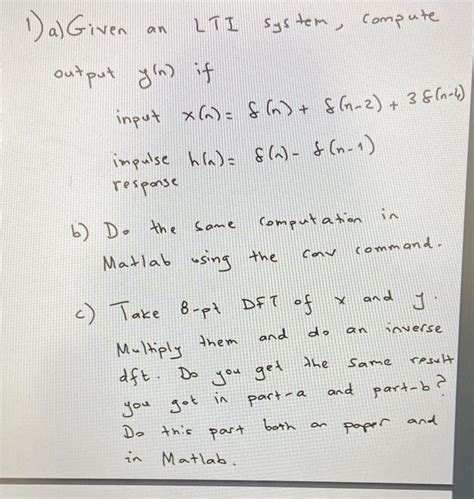 1) a) Given an LTI system, compute
output y(n) if
input x(n) = δ(n) + δ(n-2) + 3δ(n-4)
impulse h(n) = δ(n) - δ(n-1)
response
b) Do the same computation in
Matlab using the conv command.
c) Take 8-pt DFT of x and y.
Multiply them and do an inverse
dft. Do you get the same result
you got in part-a and part-b?
Do this part both on paper and
in Matlab.